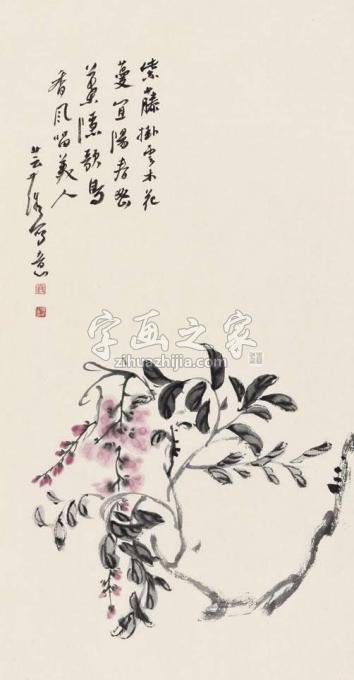 紫藤掛雲木花
蔓宜陽春密
葉隱歌鳥
香風留美人
寫意
字画之家
zihuazhijia.com